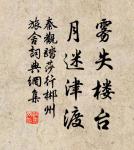 雾失楼台
月迷津渡
秦觀踏莎行郴州
旅舍詞典網集